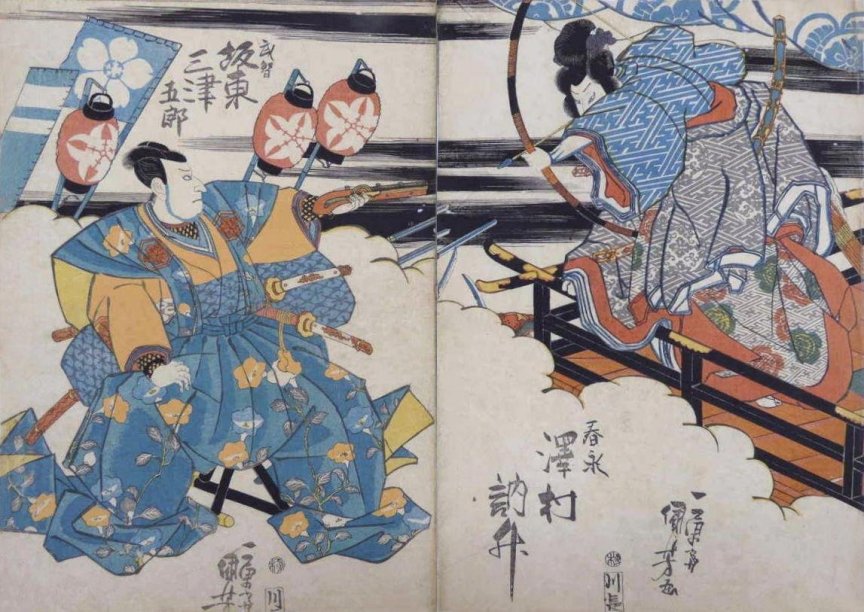 春永
澤村
訥升
一勇斎
國芳画
極
川長
武智
坂東
三津
五郎
一勇斎
國芳
極
川